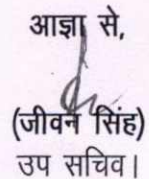 आज्ञा से,
(जीवन सिंह)
उप सचिव।